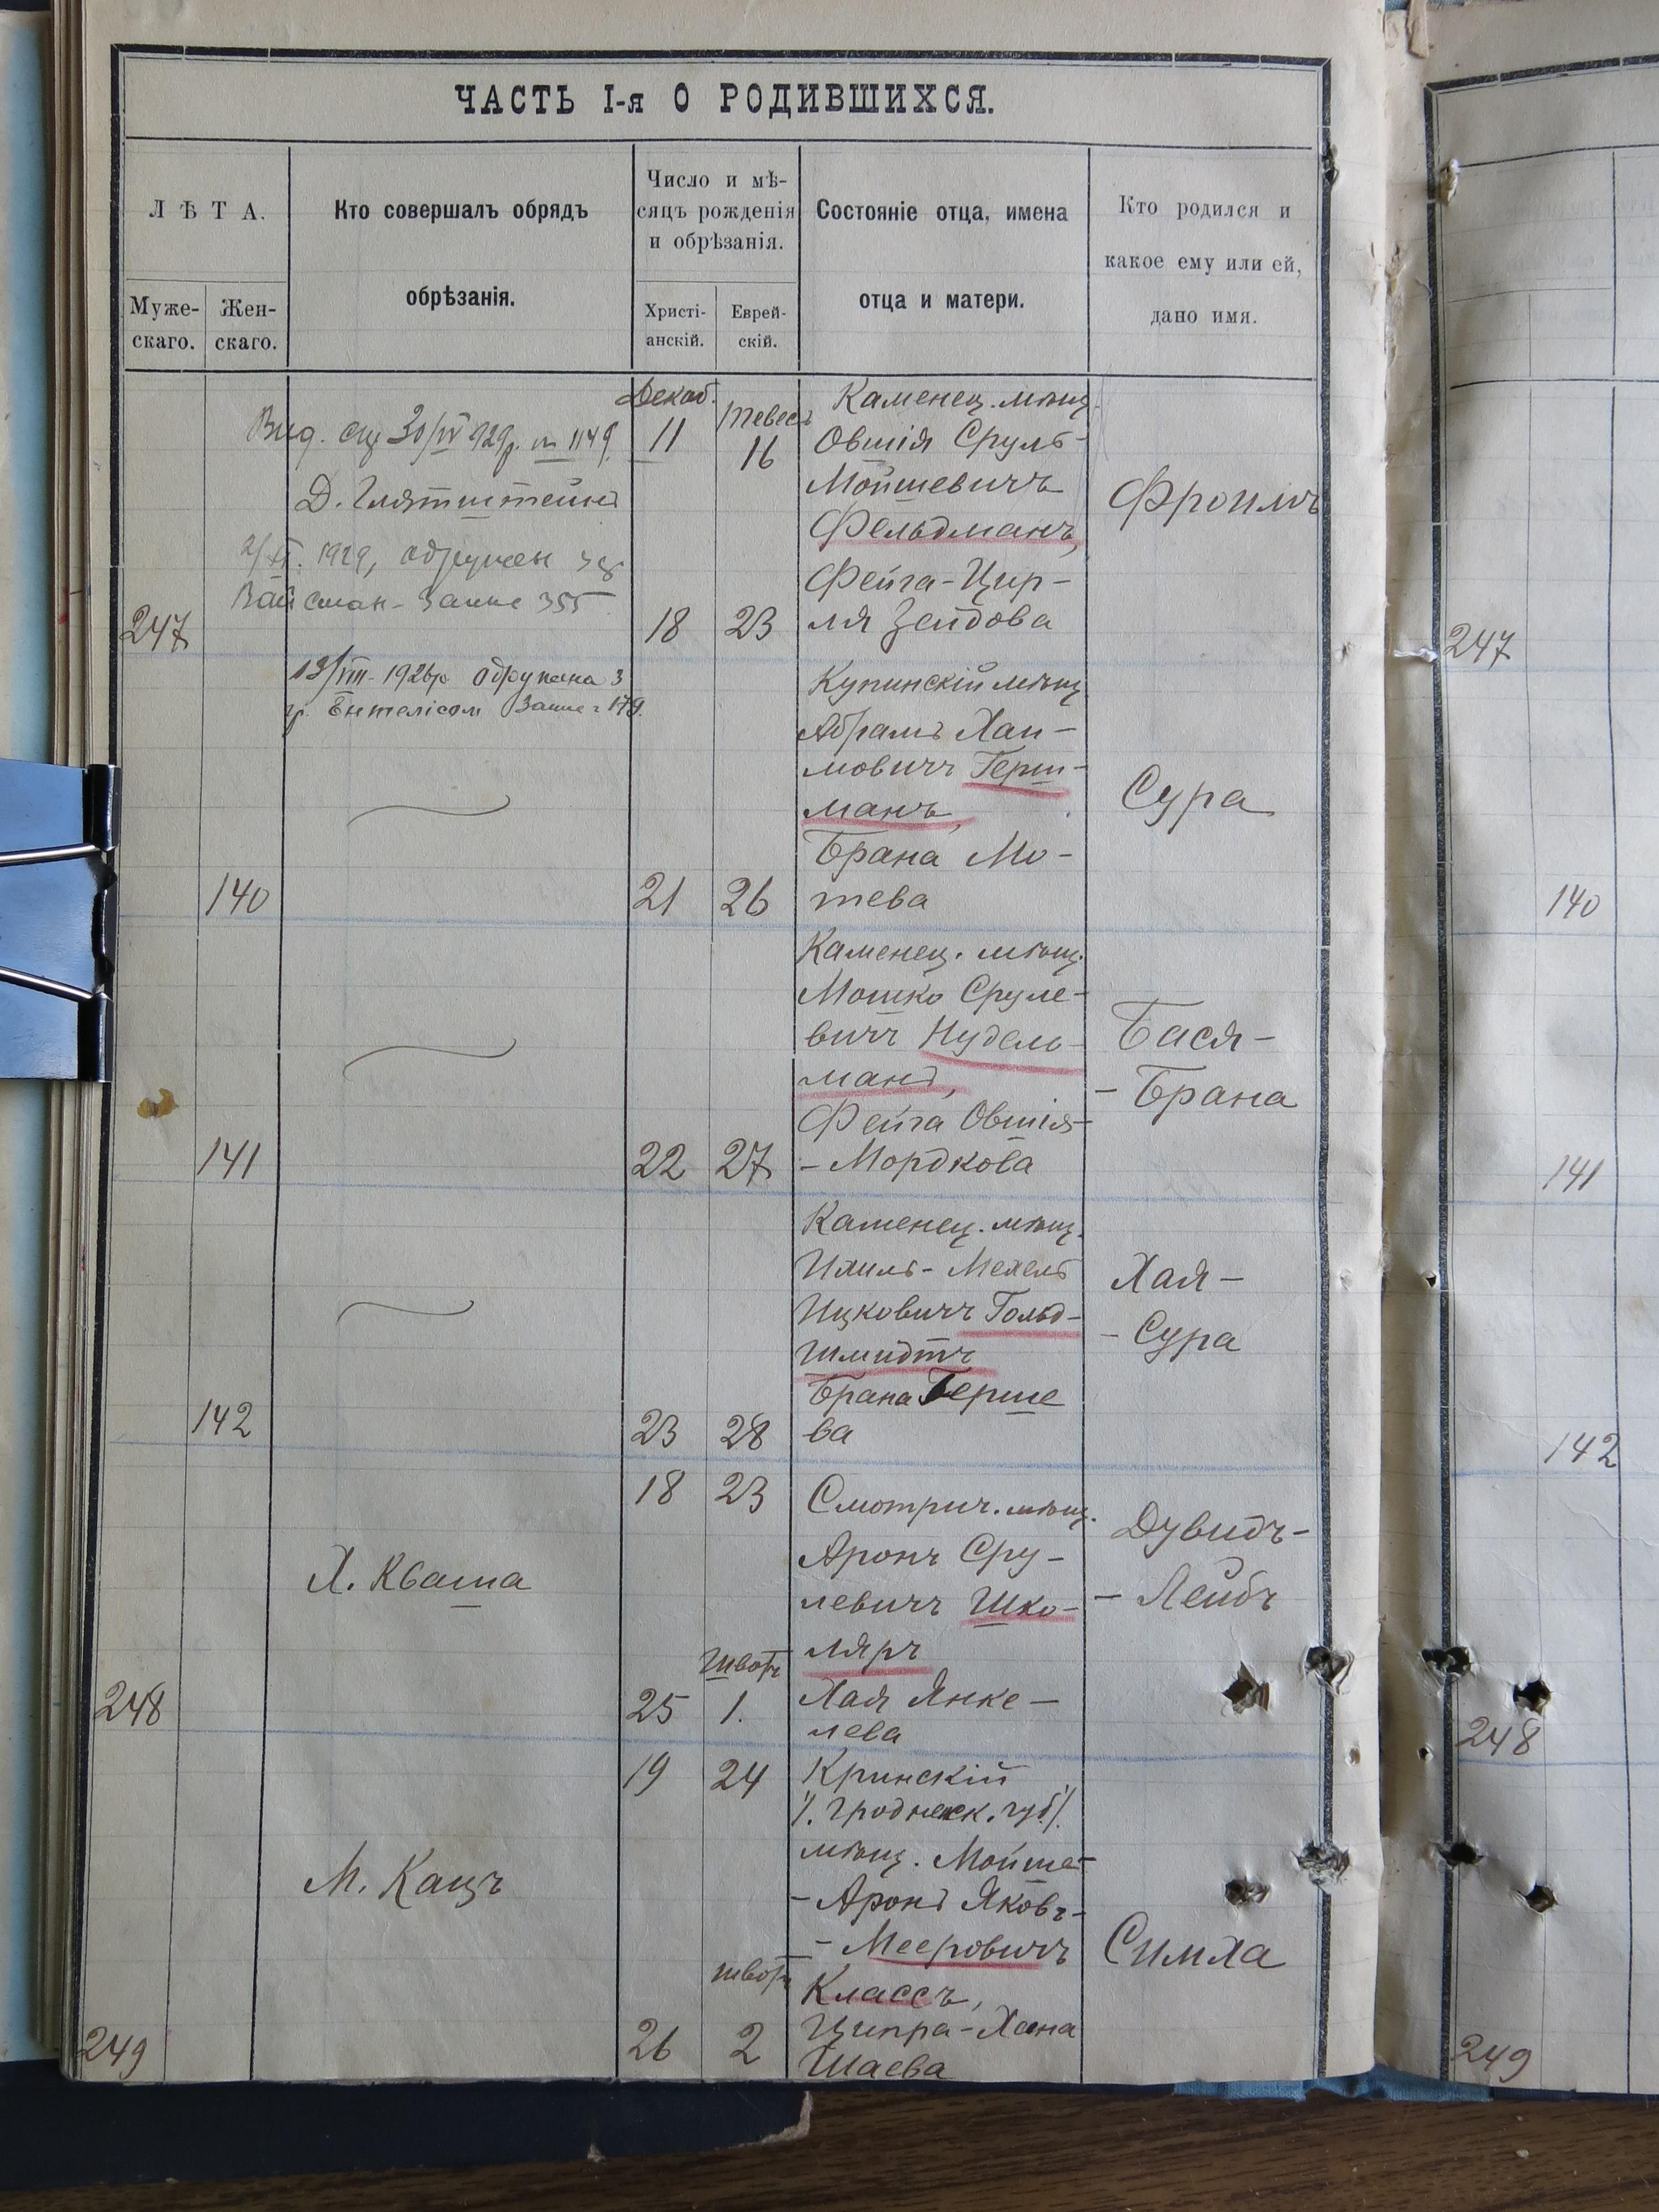 ЧАСТЬ I-я О РОДИВШИХСЯ.
ЛѢТА.
Муже-
скаго.
Жен-
скаго.
Кто совершалъ обрядъ
обрѣзанія.
Число и мѣ-
сяцъ рожденія
и обрѣзанія.
Христі-
анскій.
Еврей-
скій.
Состояніе отца, имена
отца и матери.
Кто родился и
какое ему или ей,
дано имя.
Декаб.
Тевесъ
11
16
Д. Глятштейнъ
1929, одружен з
Вайсман - Запис 355
247
18
23
Каменец. мѣщ.
Овшія Сруль-
Мойшевичъ
Фельдманъ,
Фейга-Цир-
ля Зейдова
Фроимъ
13/VIII - 1926р одружена з
гр. Ентелісом Запис 179.
140
21
26
Купинскій мѣщ
Абрамъ Хаи-
мовичъ Герш-
манъ,
Брана Мо-
тева
Сура
141
22
27
Каменец. мѣщ.
Мошко Сруле-
вичъ Нудель-
манъ,
Фейга Овшія-
- Мордкова
Бася-
- Брана
142
23
28
Каменец. мѣщ.
Ихиль-Мехель
Ицковичъ Гольд-
шмидтъ
Брана Герше
ва
Хая-
- Сура
18
23
Х. Кваша
Шватъ
248
25
1.
Смотрич. мѣщ.
Аронъ Сру-
левичъ Шко-
ляръ
Хая Янке-
лева
Дувидъ-
- Лейбъ
19
24
М. Кацъ
шватъ
249
26
2
Кринскій
/. Гродненск. губ./.
мѣщ. Мойше-
- Аронъ Яковъ-
- Мееровичъ
Классъ,
Ципра-Хана
Шаева
Симха
247
140
141
142
248
249